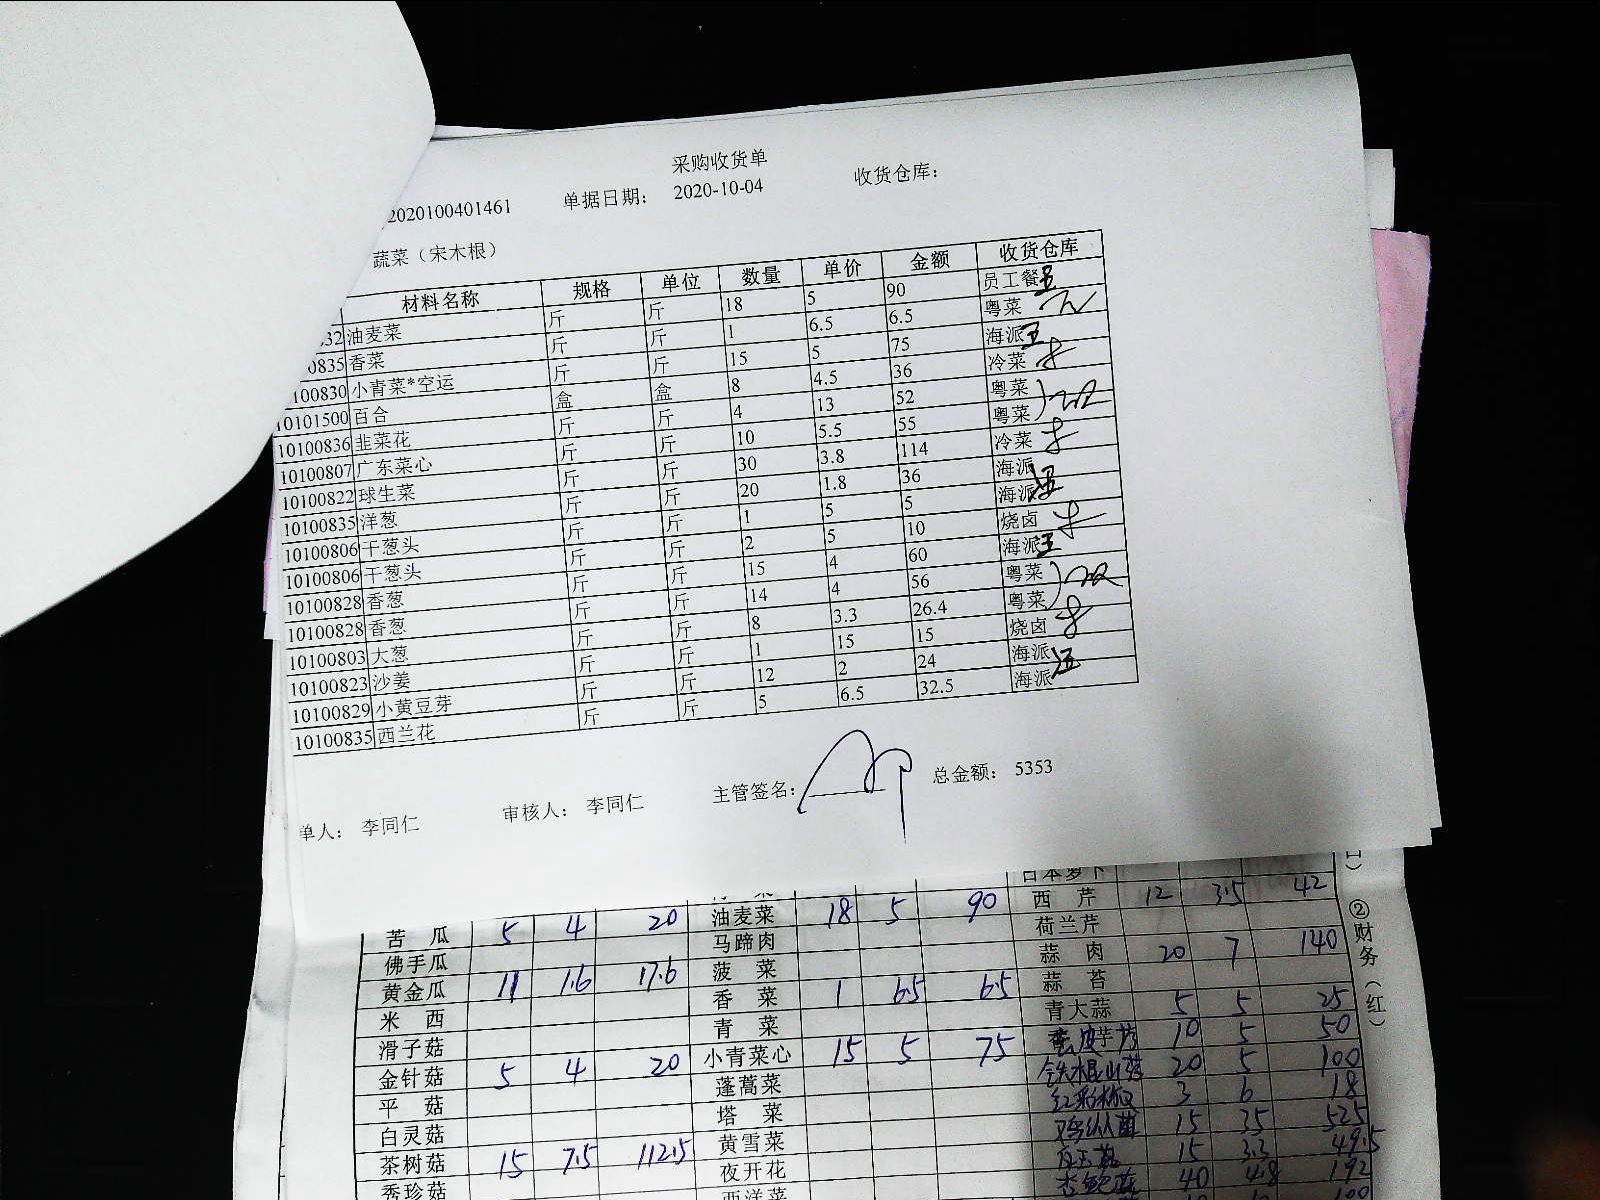 采购收货单
2020100401461 单据日期: 2020-10-04 收货仓库:
蔬菜（宋木根）
材料名称 规格 单位 数量 单价 金额 收货仓库
32 油麦菜 斤 斤 18 5 90 员工餐
0835 香菜 斤 斤 1 6.5 6.5 粤菜
100830 小青菜*空运 斤 斤 15 5 75 海派
10101500 百合 盒 盒 8 4.5 36 冷菜
10100836 韭菜花 斤 斤 4 13 52 粤菜
10100807 广东菜心 斤 斤 10 5.5 55 粤菜
10100822 球生菜 斤 斤 30 3.8 114 冷菜
10100835 洋葱 斤 斤 20 1.8 36 海派
10100806 干葱头 斤 斤 1 5 5 海派
10100806 干葱头 斤 斤 2 5 10 烧卤
10100828 香葱 斤 斤 15 4 60 海派
10100828 香葱 斤 斤 14 4 56 粤菜
10100803 大葱 斤 斤 8 3.3 26.4 粤菜
10100823 沙姜 斤 斤 1 15 15 烧卤
10100829 小黄豆芽 斤 斤 12 2 24 海派
10100835 西兰花 斤 斤 5 6.5 32.5 海派
单人: 李同仁 审核人: 李同仁 主管签名: 总金额: 5353
日本萝卜
苦瓜 5 4 20 油麦菜 18 5 90 西芹 12 3.5 42
佛手瓜 马蹄肉 荷兰芹
黄金瓜 11 1.6 17.6 菠菜 蒜肉 20 7 140
米西 香菜 1 6.5 6.5 蒜苔
滑子菇 青菜 青大蒜 5 5 25
金针菇 5 4 20 小青菜心 15 5 75 10 5 50
平菇 蓬蒿菜 铁棍山药 20 5 100
白灵菇 塔菜 红彩椒 3 6 18
茶树菇 15 7.5 112.5 黄雪菜 鸡枞菌 15 35 525
秀珍菇 夜开花 白玉菇 15 3.3 49.5
西洋菜 杏鲍菇 40 4.8 192
②财务（红）